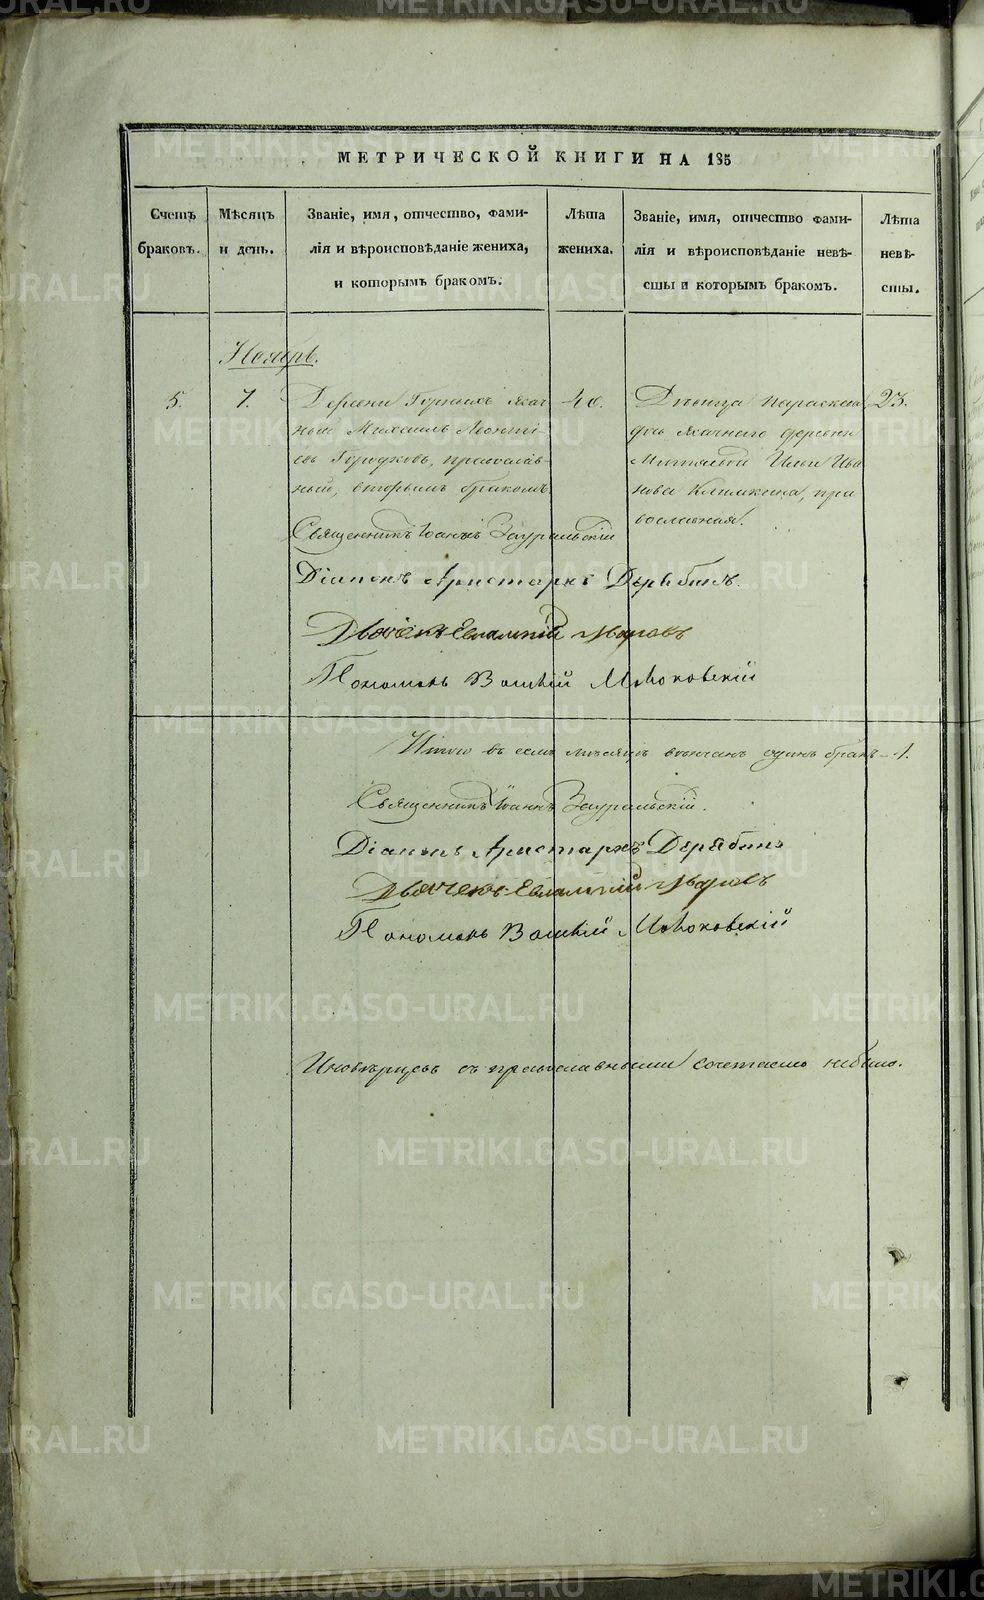 МЕТРИЧЕСКОЙ КНИГИ НА 185
Счетъ браковъ.
Мѣсяцъ и день.
Званіе, имя, отчество, фами-
лія и вѣроисповѣданіе жениха,
и которымъ бракомъ.
Лѣта
жениха.
Званіе, имя, отчество фами-
лія и вѣроисповѣданіе невѣ-
сты и которымъ бракомъ.
Лѣта
невѣ-
сты.
Ноябрь.
5.
7.
Деревни Горныхъ ясач
ный Михаилъ Леонті-
евъ Городковъ, православ
ный, вторымъ бракомъ.
40.
Дѣвица Параскева
дочь ясачнаго деревни
Митяевой Ильи Ива
нова Климкина, пра
вославная.
23.
Священникъ Іоаннъ Зауральскій
Діаконъ Аристархъ Дерябинъ.
Дьячекъ Евлампій Маровъ
Пономарь
Итого въ семъ мѣсяцѣ вѣнчанъ одинъ бракъ – 1.
Священникъ Іоаннъ Зауральскій.
Діаконъ Аристархъ Дерябинъ
Дьячекъ Евлампій Маровъ
Пономарь
Иновѣрцевъ съ православными сочетаемо небыло.
METRIKI.GASO-URAL.RU